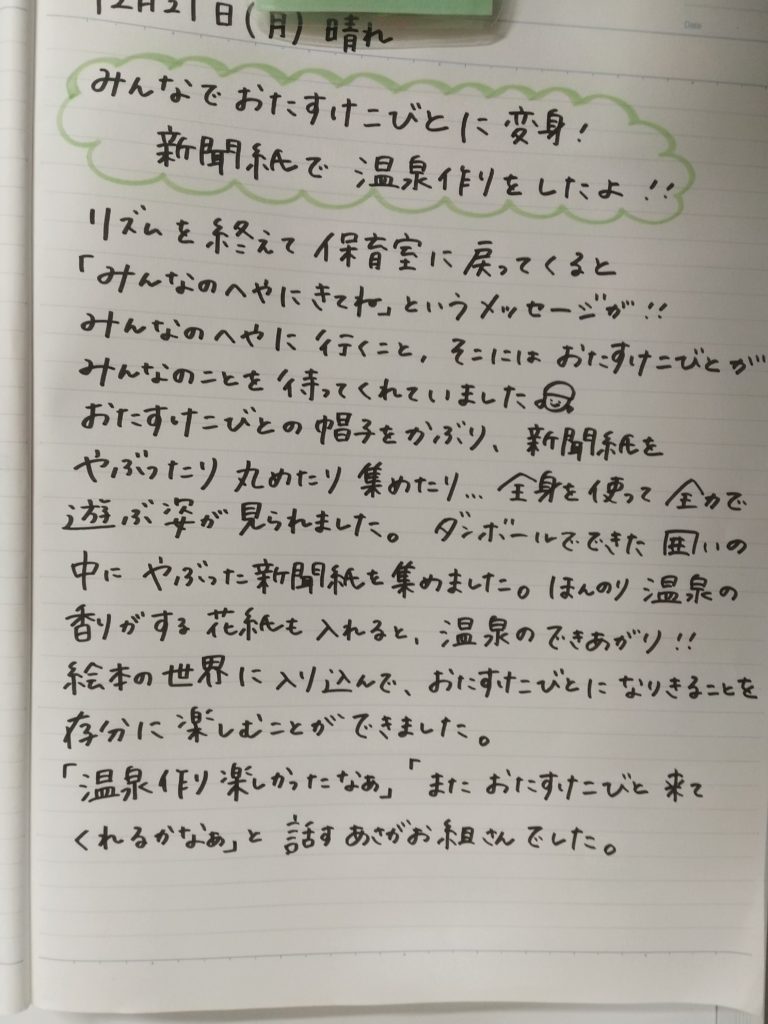 12月21日(月) 晴れ
みんなでおたすけこびとに変身!
新聞紙で 温泉作りをしたよ!!
リズムを終えて 保育室に戻ってくると
「みんなのへやにきてね」というメッセージが!!
みんなのへやに行くこと、そこには おたすけこびとが
みんなのことを待ってくれていました
おたすけこびとの帽子をかぶり、新聞紙を
やぶったり 丸めたり 集めたり…全身を使って 全力で
遊ぶ姿が見られました。ダンボールでできた囲いの
中に やぶった新聞紙を集めました。ほんのり温泉の
香りがする花紙も入れると、温泉のできあがり!!
絵本の世界に入り込んで、おたすけこびとになりきることを
存分に楽しむことができました。
「温泉作り楽しかったなぁ」「また おたすけこびと 来て
くれるかなぁ」と話すあさがお組さんでした。